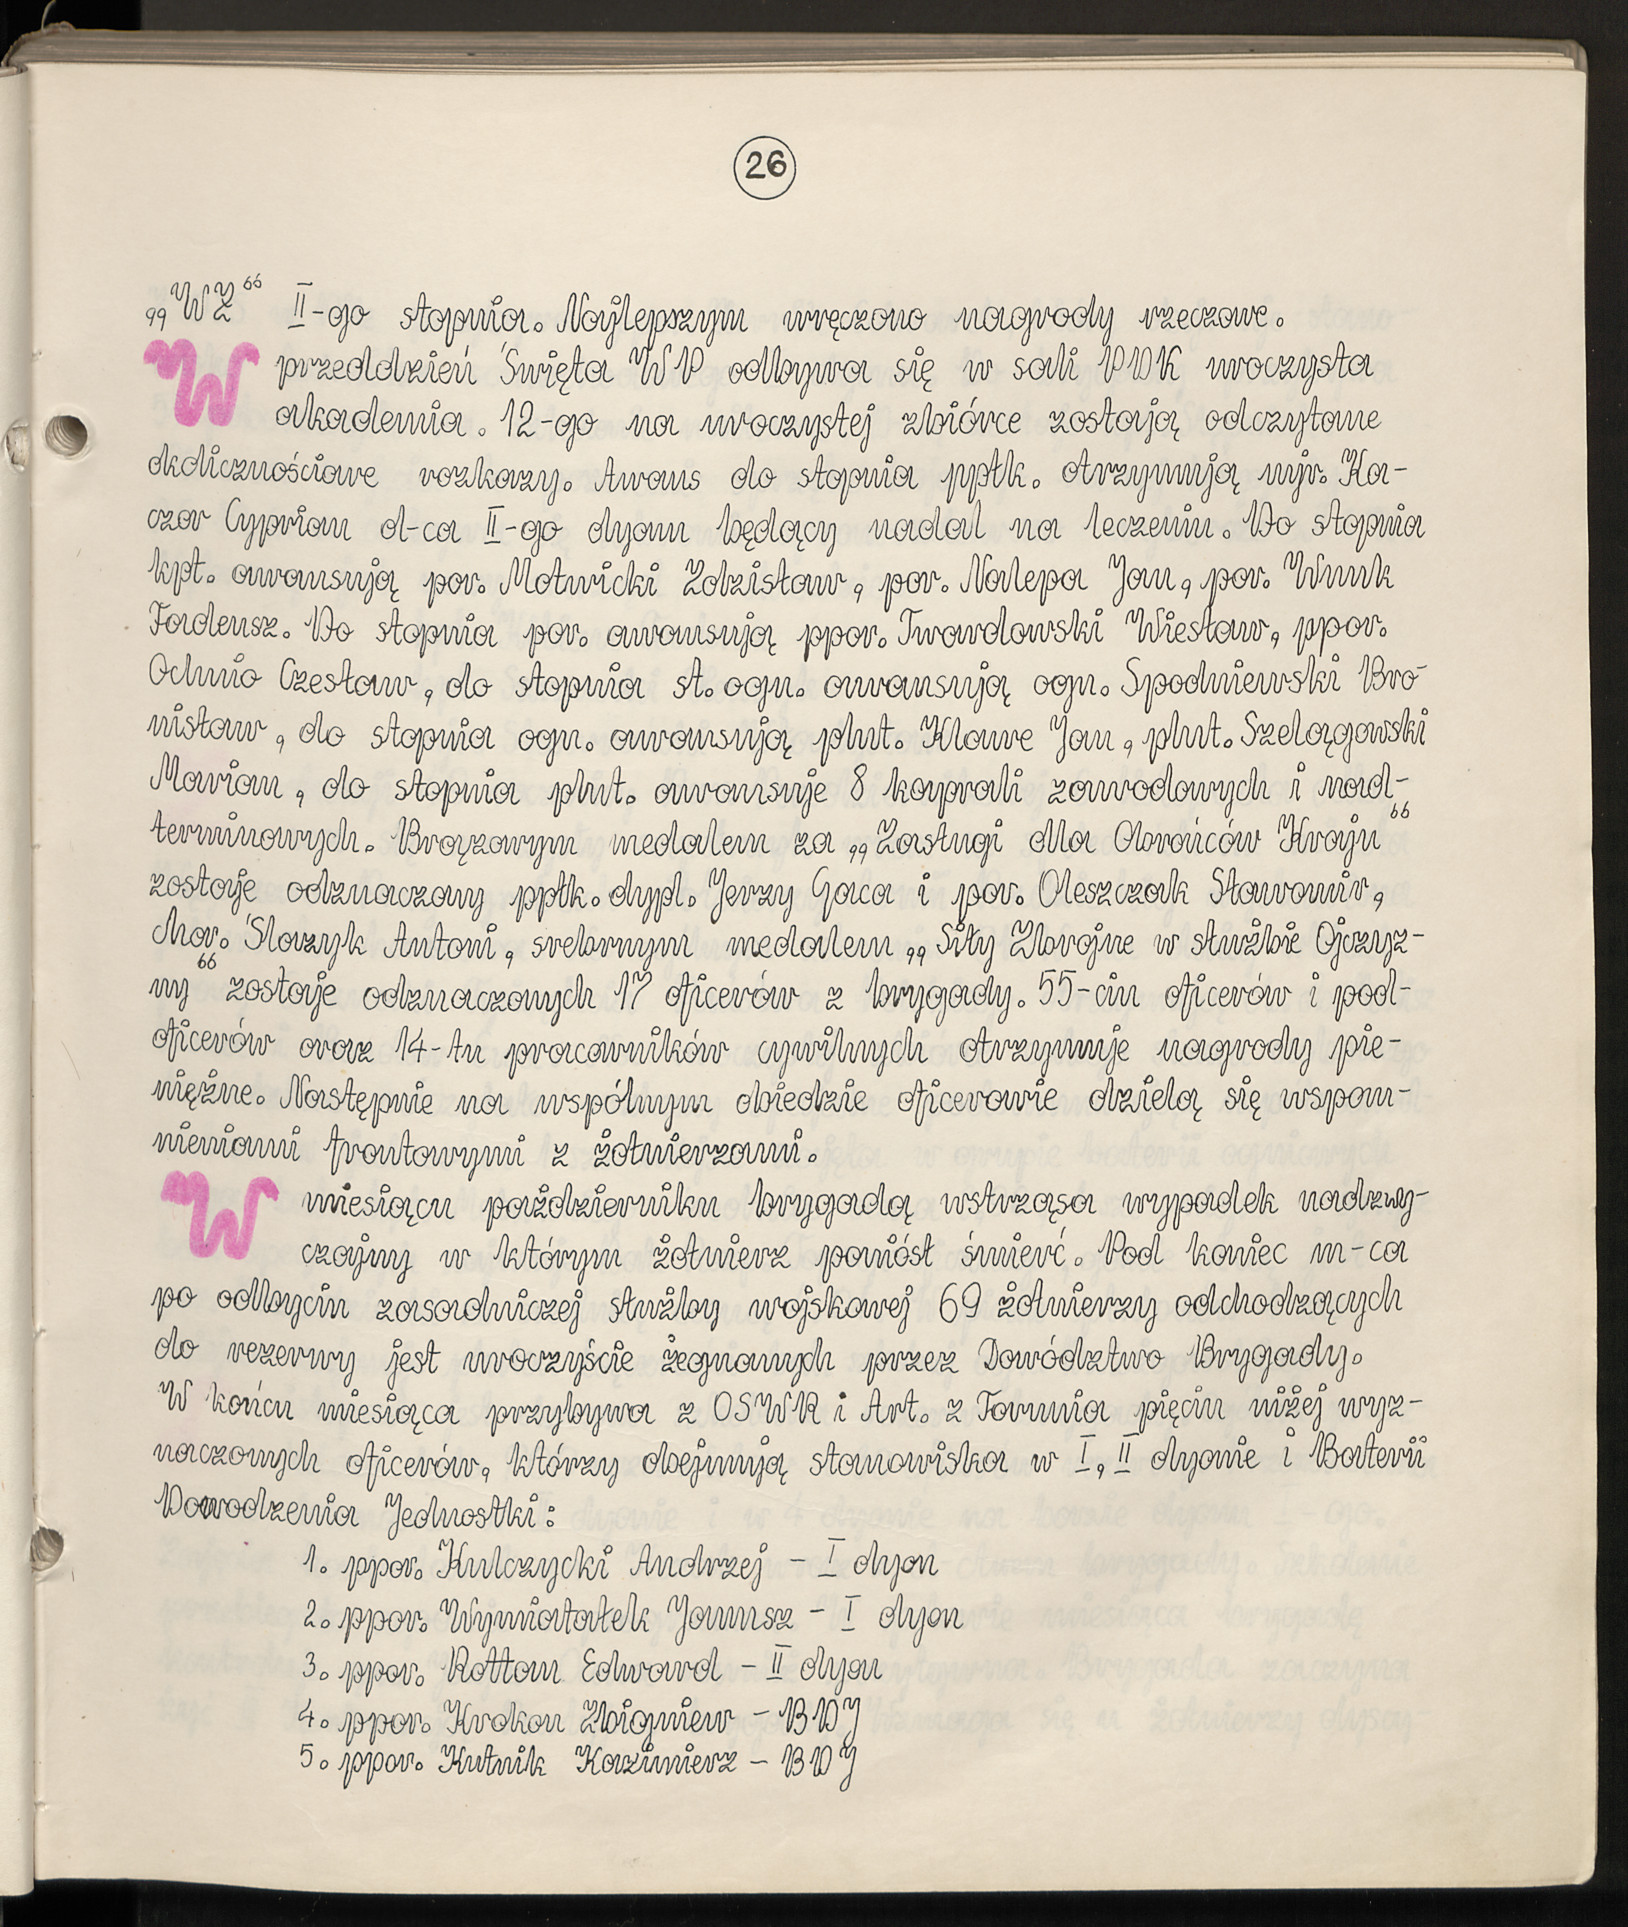 26
„WŻ” II-go stopnia. Najlepszym wręczono nagrody rzeczowe.
W przeddzień Święta WP odbywa się w sali PDK uroczysta
akademia. 12-go na uroczystej zbiórce zostają odczytane
okolicznościowe rozkazy. Awans do stopnia ppłk. otrzymują mjr. Ka-
czor Cyprian d-ca II-go dyonu będący nadal na leczeniu. Do stopnia
kpt. awansują por. Motwicki Zdzisław, por. Nalepa Jan, por. Wnuk
Tadeusz. Do stopnia por. awansują ppor. Twardowski Wiesław, ppor.
Ochnio Czesław, do stopnia st. ogn. awansują ogn. Spodniewski Bro-
nisław, do stopnia ogn. awansują plut. Klawe Jan, plut. Szelągowski
Marian, do stopnia plut. awansuje 8 kaprali zawodowych i nad-
terminowych. Brązowym medalem za „Zasługi dla Obrońców Kraju”
zostaje odznaczony ppłk. dypl. Jerzy Gaca i por. Oleszczak Sławomir,
chor. Ślozyk Antoni, srebrnym medalem „Siły Zbrojne w służbie Ojczyz-
ny” zostaje odznaczonych 17 oficerów z brygady. 55-ciu oficerów i pod-
oficerów oraz 14-tu pracowników cywilnych otrzymuje nagrody pie-
niężne. Następnie na wspólnym obiedzie oficerowie dzielą się wspom-
nieniami frontowymi z żołnierzami.
W miesiącu październiku brygadą wstrząsa wypadek nadzwy-
czajny w którym żołnierz poniósł śmierć. Pod koniec m-ca
po odbyciu zasadniczej służby wojskowej 69 żołnierzy odchodzących
do rezerwy jest uroczyście żegnanych przez Dowództwo Brygady.
W końcu miesiąca przybywa z OSWR i Art. z Torunia pięciu niżej wyz-
naczonych oficerów, którzy obejmują stanowiska w I, II dyonie i Baterii
Dowodzenia Jednostki:
1. ppor. Kulczycki Andrzej – I dyon
2. ppor. Wymiatałek Janusz – I dyon
3. ppor. Rottam Edward – II dyon
4. ppor. Krokon Zbigniew – BDJ
5. ppor. Kutnik Kazimierz – BDJ